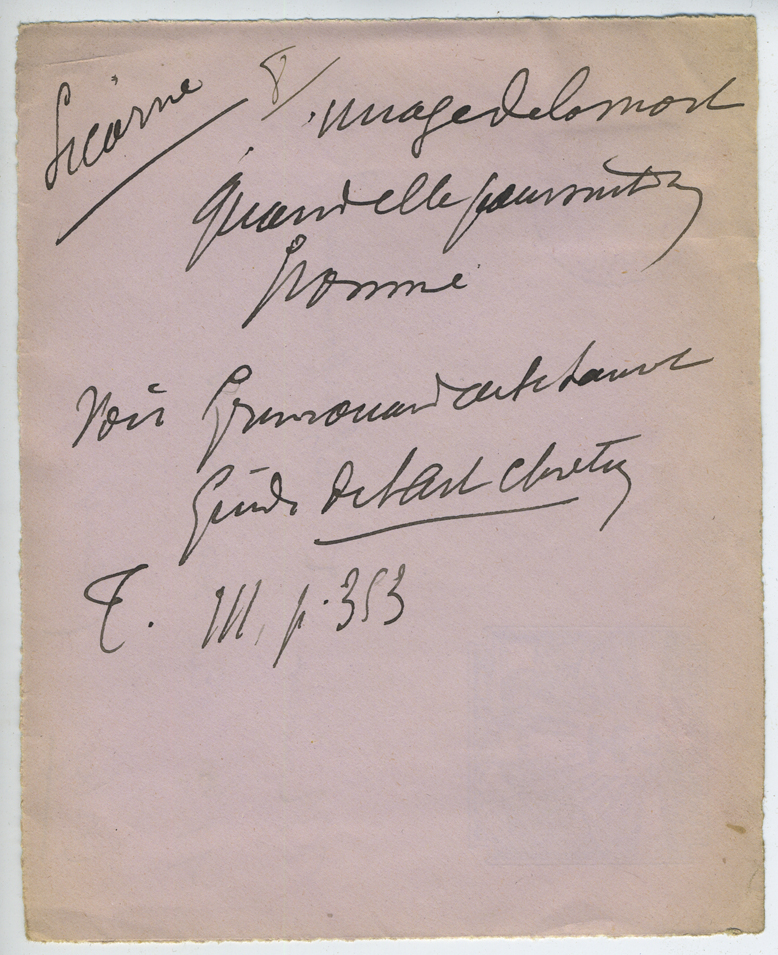 Licorne 8/ image de la mort
quand elle poursuit
l'homme
Voir Grimouard de St Laurent
Guide de l'art chrétien
T. III, p. 353